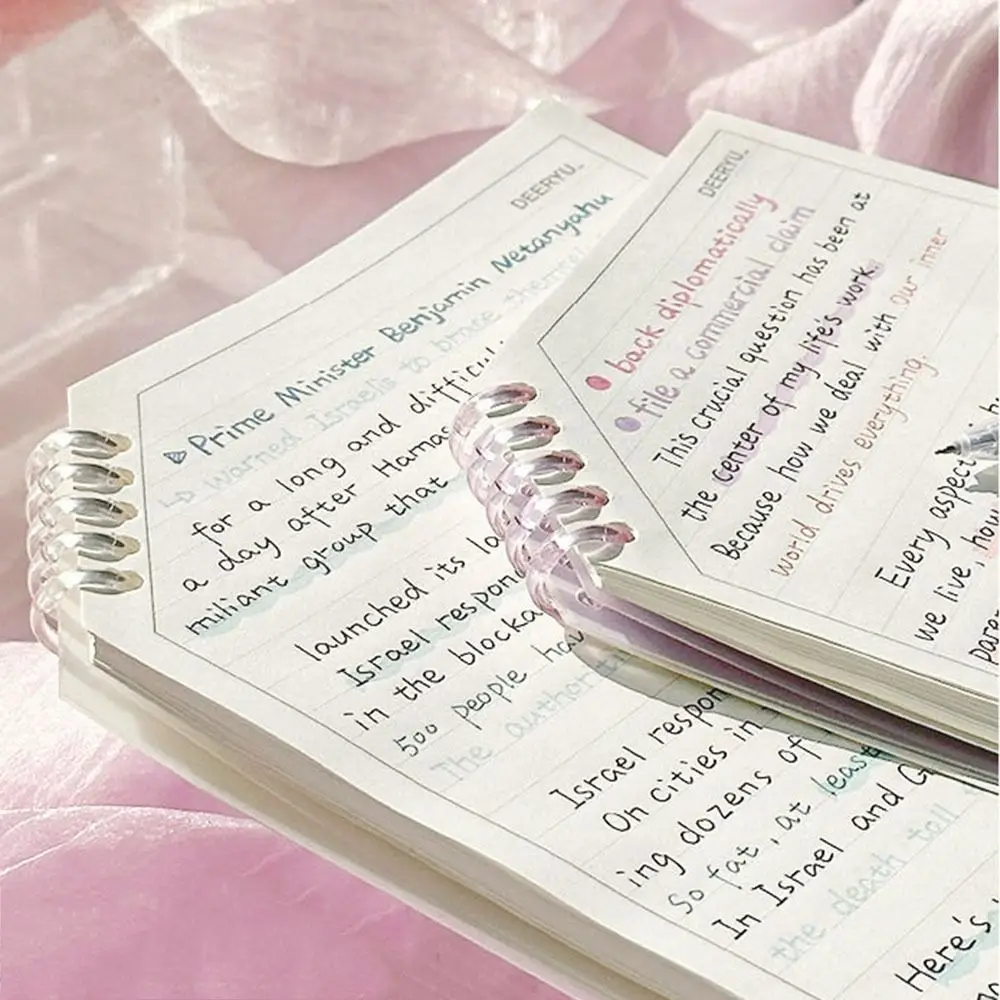 DEERYU.
▷Prime Minister Benjamin Netanyahu
LD Warned Israelis to brace themsel
for a long and difficul
a day after Hamas
miliant group that
launched its la
Israel respon
in the blocka
500 people ha
The author
Israel respon
On cities in
ing dozens of
So fat, at least
In Israel and G
the death toll
Here's
DEERYU.
● back diplomatically
● file a commercial claim
This crucial question has been at
the center of my life's work.
Because how we deal with our inner
world drives everything.
Every aspect
we live, how
paren